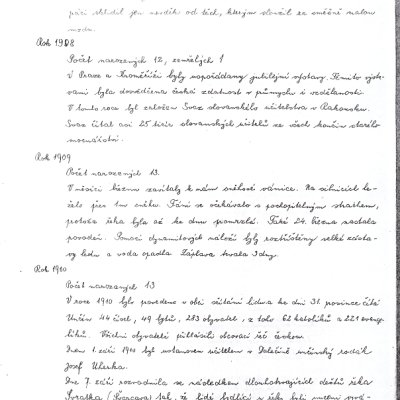 páni sklidil jen nevděk od těch, kterým sloužil za směšně malou
mzdu.
Rok 1908
Počet narozených 12, zemřelých 1
V Praze a Kroměříži byly uspořádány jubilejní výstavy. Těmito výsta-
vami byla dovršena česká zdatnost v průmyslu i vzdělanosti.
V tomto roce byl založen Svaz slovanského učitelstva v Rakousku.
Svaz čítal asi 25 tisíc slovanských učitelů ze všech končin starého
mocnářství.
Rok 1909
Počet narozených 13.
V měsíci březnu zavítaly k nám sněhové vánice. Na silnicích le-
želo přes 1m sněhu. Tání se očekávalo s pochopitelným strachem,
protože řeka byla až ke dnu promrzlá. Také 24. března nastala
povodeň. Pomocí dynamitových náloží byly roztříštěny velké zásta-
vy ledu a voda opadla. Záplava trvala 3 dny.
Rok 1910
Počet narozených 13
V roce 1910 bylo provedeno v obci sčítání lidu a ke dni 31. prosince čítá
Unčín 44 čísel, 49 bytů, 283 obyvatel, z toho 62 katolíků a 221 evange-
líků. Všichni obyvatelé přihlásili obcovací řeč českou.
Dnem 1. září 1910 byl ustanoven učitelem v Daletíně unčínský rodák
Josef Uherka.
Dne 7. září rozvodnila se následkem dlouhotrvajících dešťů řeka
Svratka (Švarcava) tak, že lidé bydlící u řeky byli nuceni vyvá-